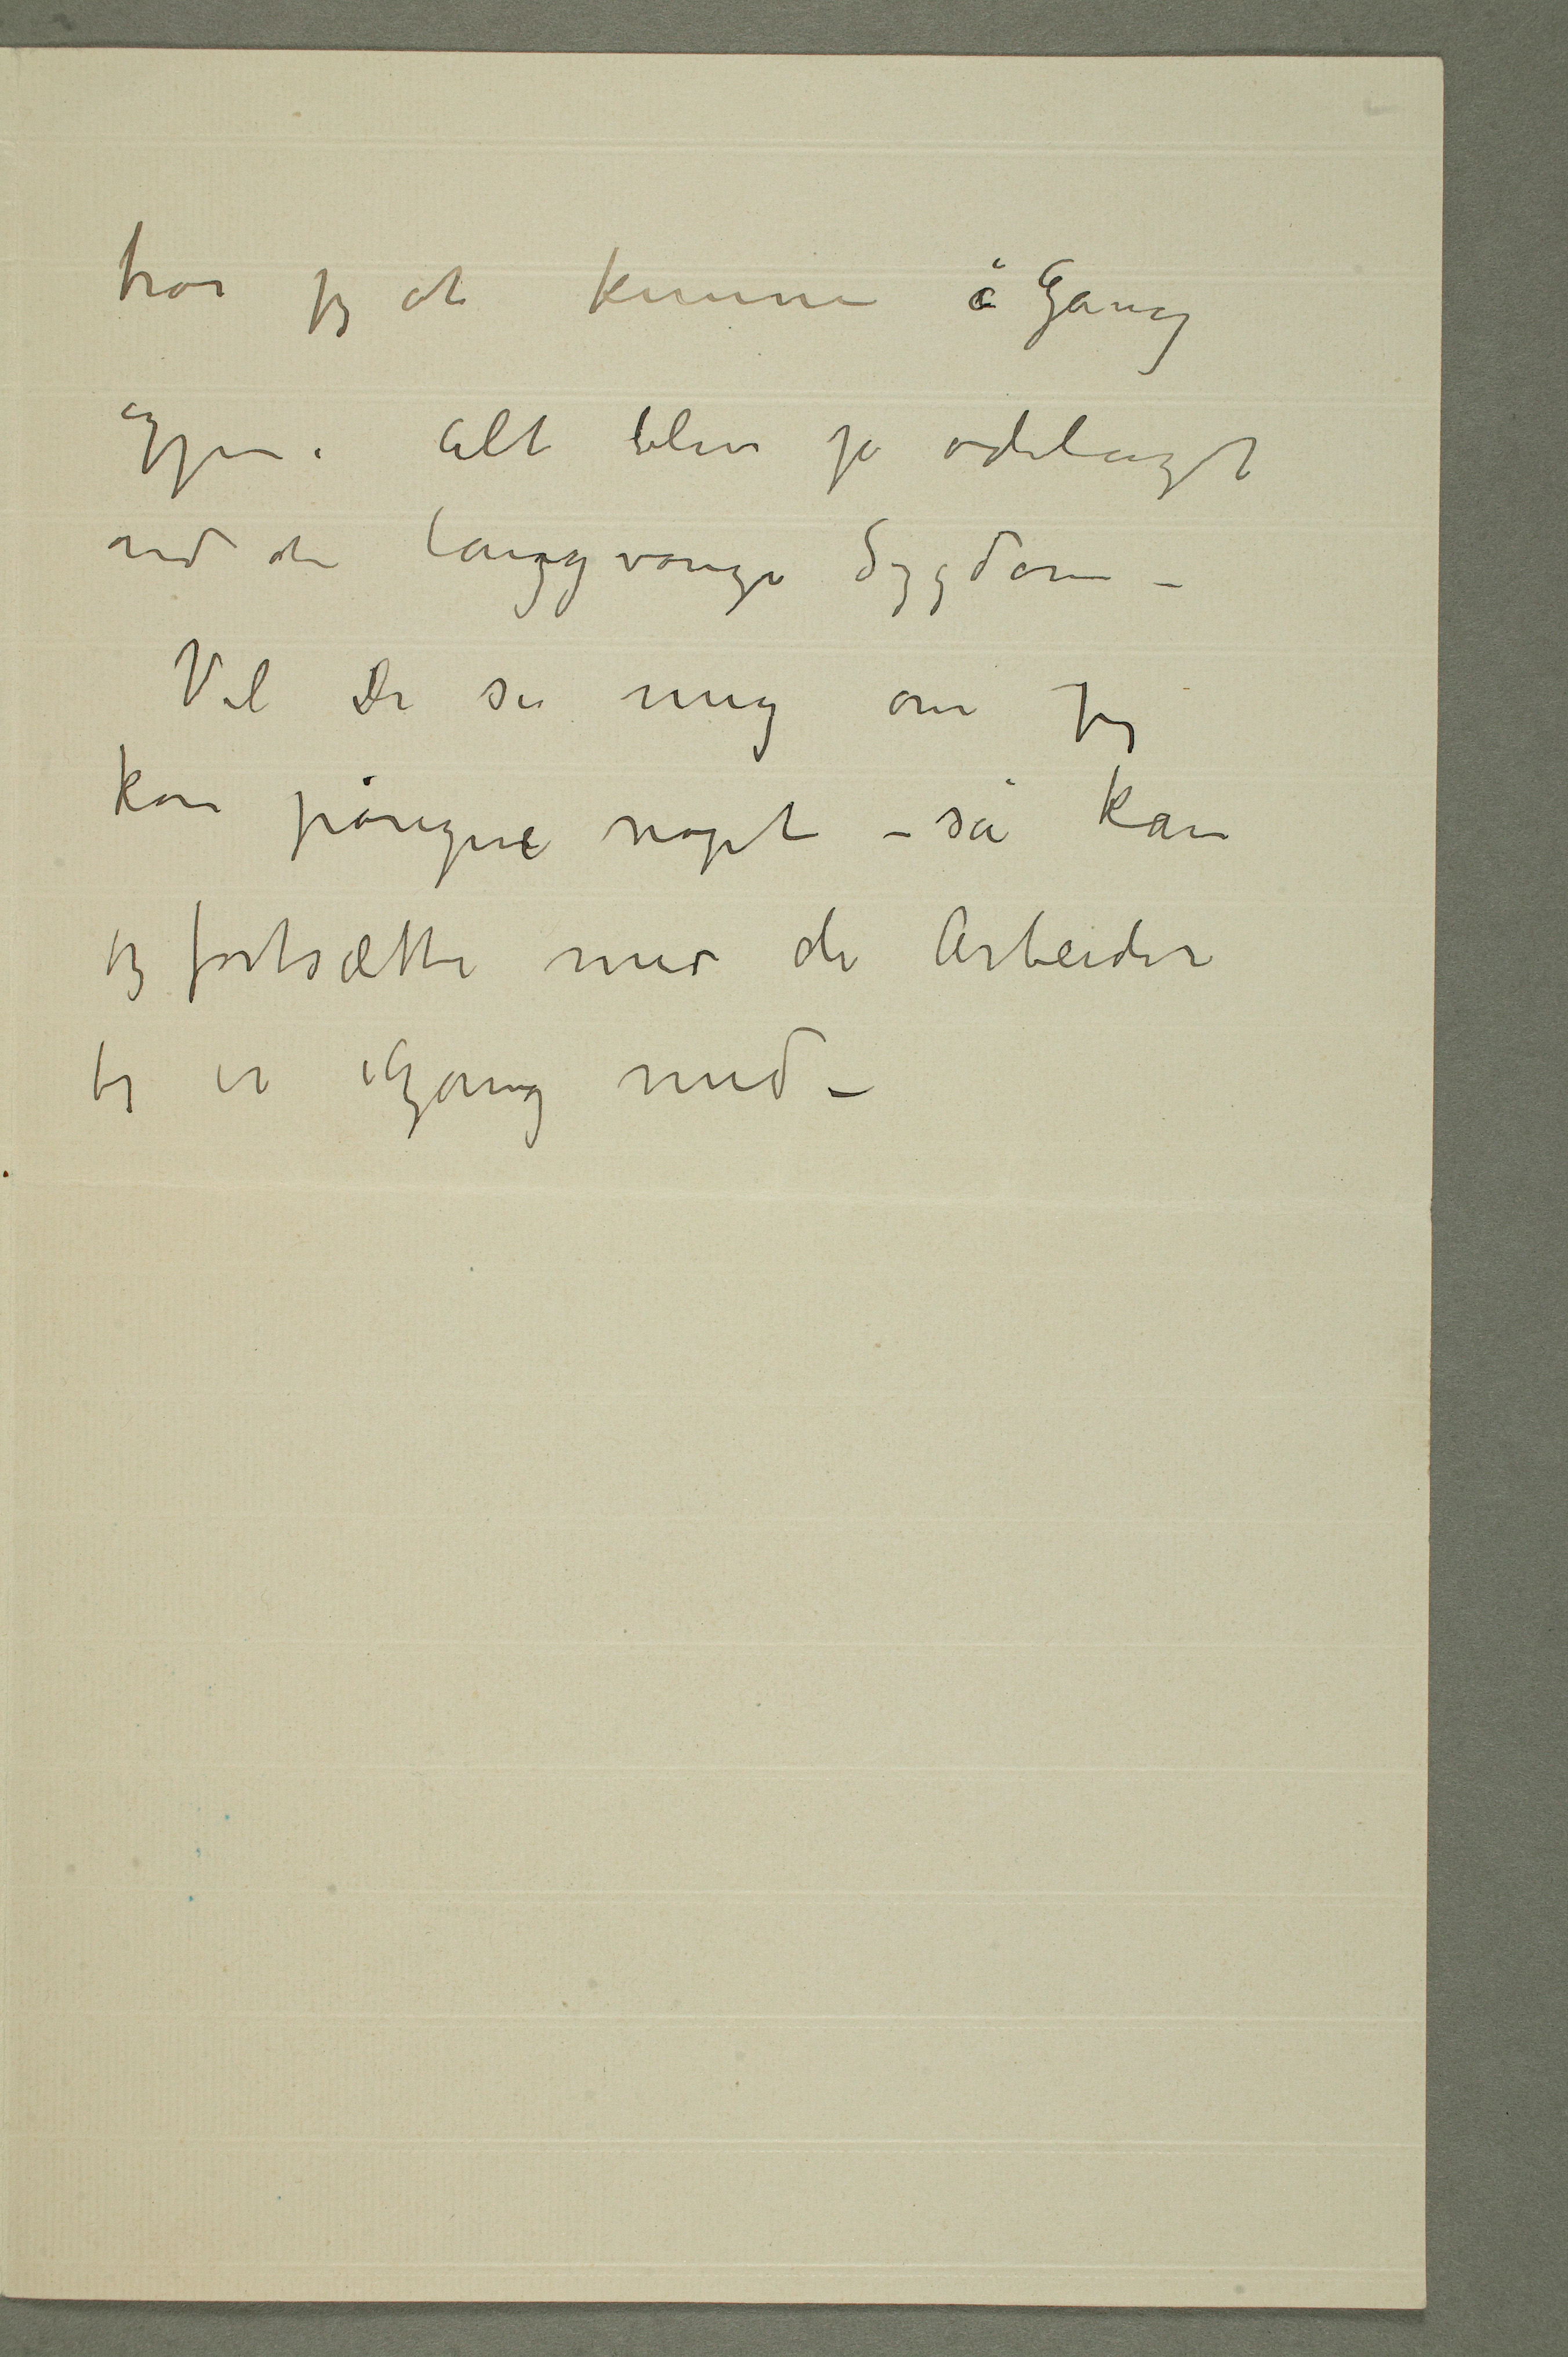 tror jeg at kunne i Gang
igjen. Alt blev jo ødelagt
ved den langvarige Sygdom –
Vil De si mig om jeg
kan påregne noget – så kan
jeg fortsætte med de Arbeider
jeg er iGang med –